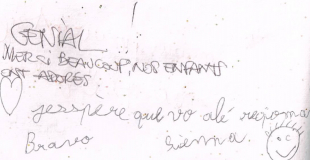 GENIAL
MERCI BEAUCOUP, NOS ENFANTS
ONT ADORÉS
jesspère que vo alé
Bravo Sienna.